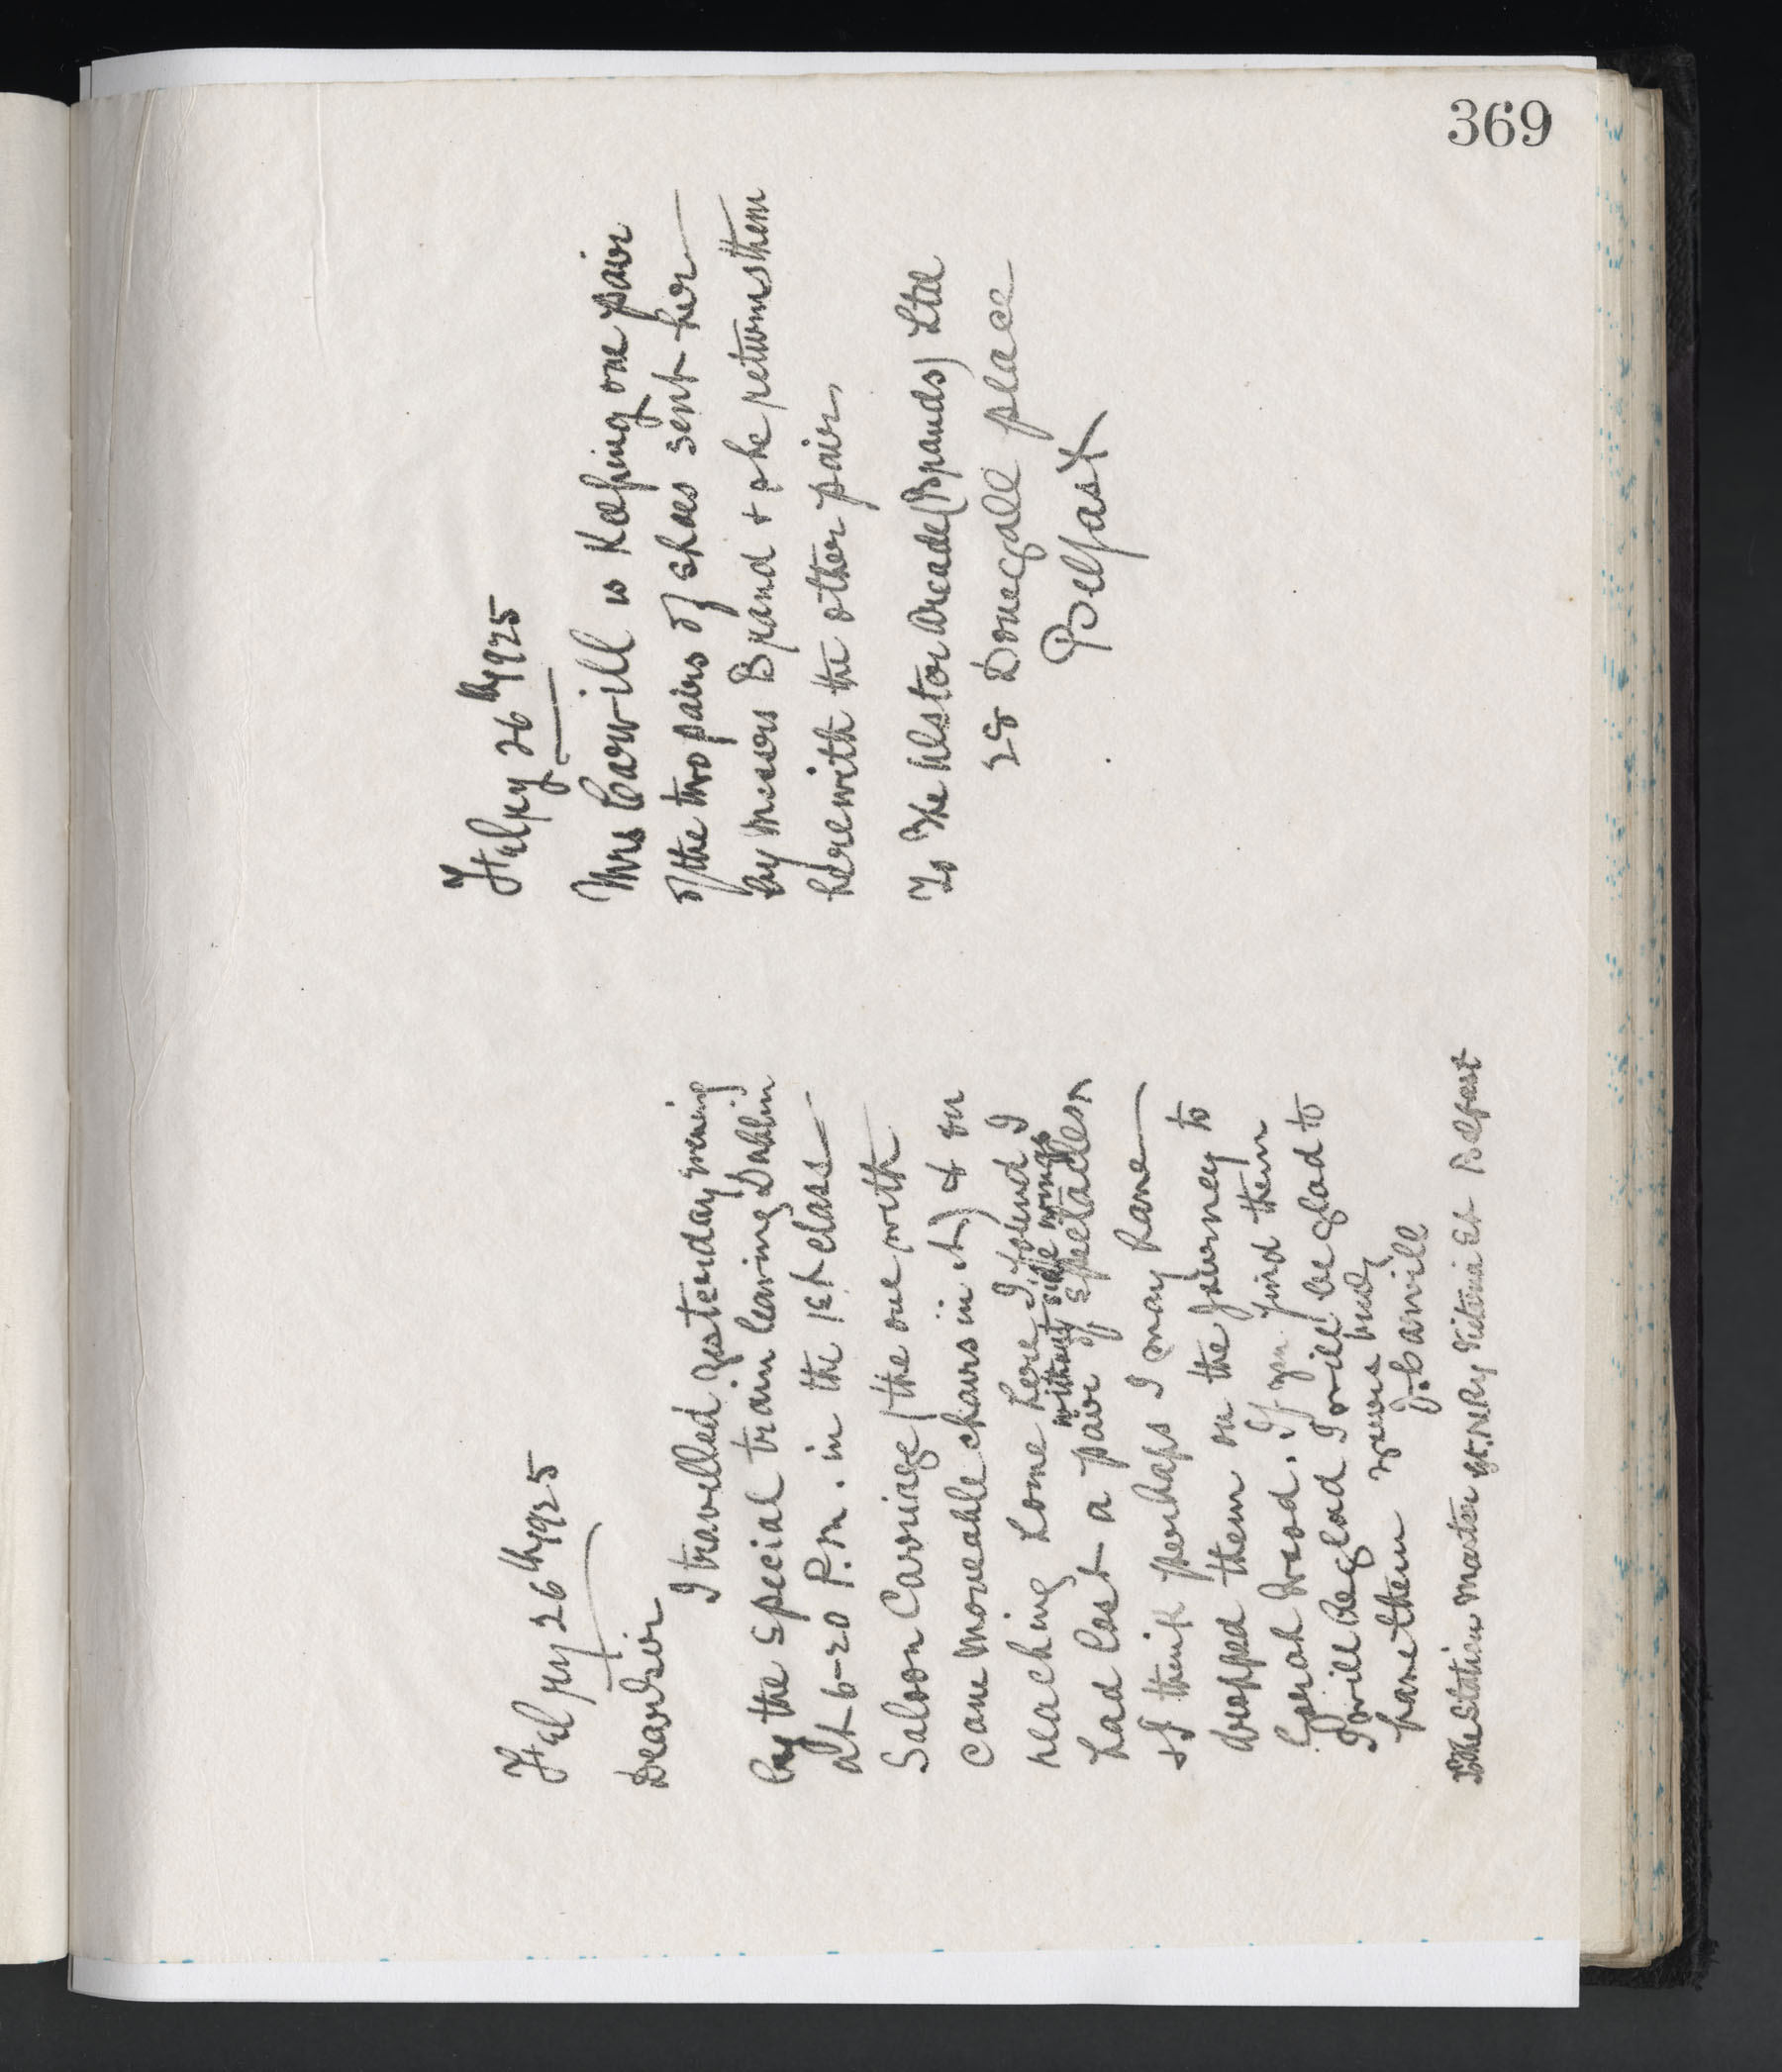 369
July 26th 1925
Dear Sir
I travelled yesterday evening
by the special train leaving Dublin
at 6-20 P.M. in the 1st class
Saloon Carriage (the one with
cane moveable chairs in it) & on
reaching home here I found I
without side wings
had lost a pair of spectacles
& I think perhaps I may have
dropped them on the journey to
Gorah Wood. If you find them
I will be glad I will be glad to
have them yours truly
J. Carvill
The Station Master Gt. N Rly Victoria St Belfast
July 26th 1925
Mrs Carvill is Keeping one pair
of the two pairs of shoes sent her
by Messrs Brand & she returns them
herewith the other pair,
To The Ulster Arcade (Brands) Ltd
28 Donegall place
Belfast